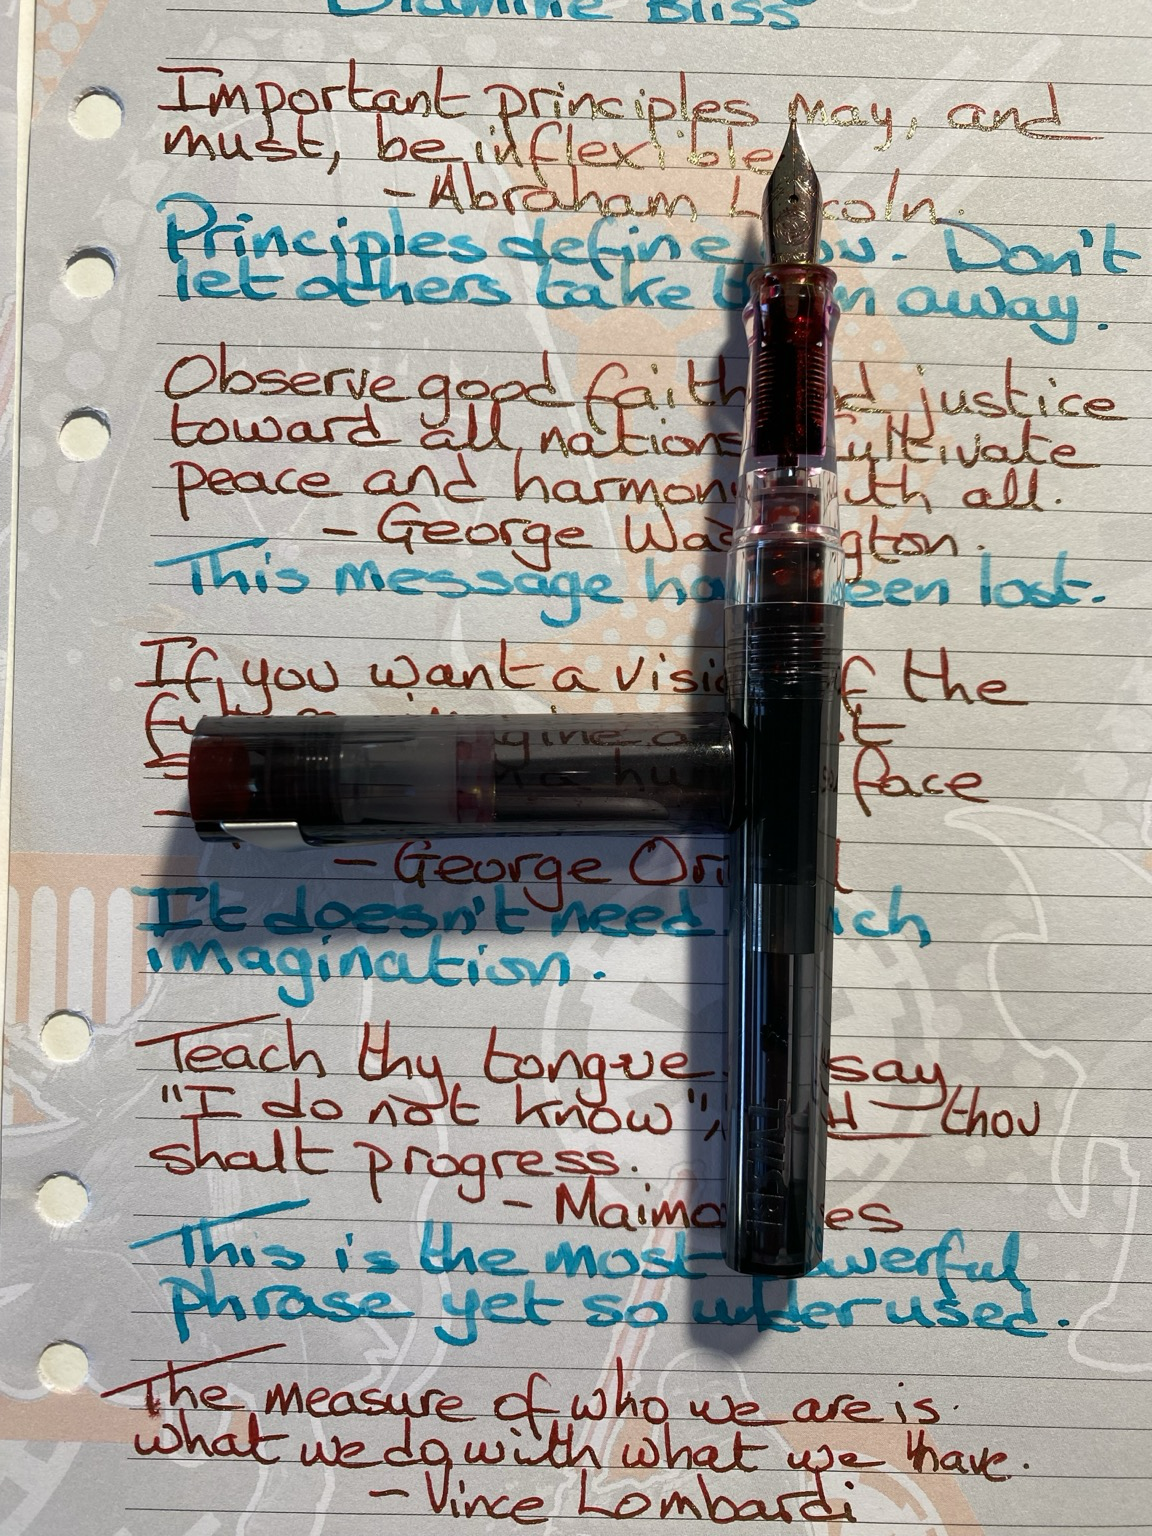 Diamine Bliss
Important principles may, and
must, be inflexible
- Abraham L coln.
Principles define . Don't
let others take away.
Observe good faith justice
toward all nations Cultivate
peace and harmony with all.
- George Was gton.
This message ha been lost.
If you want a vision of the
gine a
n a hu face
- George Or
It doesn't need
imagination.
Teach thy tongue say
"I do not know", thou
shalt progress.
- Maimo es
This is the most powerful
phrase yet so underused.
The measure of who we are is
what we do with what we have.
- Vince Lombardi
TWSBI